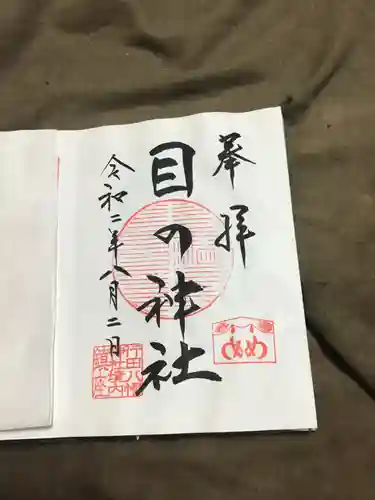 奉拝
目の神社
令和二年八月二日
めめ